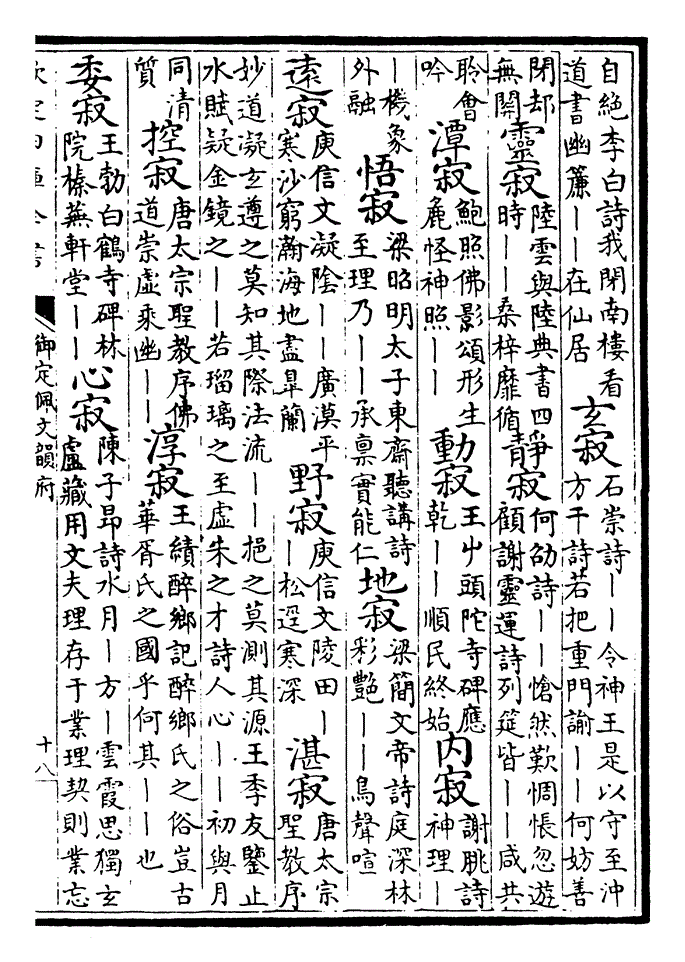 自絶李白詩我閉南樓看
道書幽簾丨丨在仙居
玄寂
石崇詩丨丨令神王是以守至沖
方干詩若把重門諭丨丨何妨善
閉却
無關
靈寂
陸雲與陸典書四
時丨丨桑梓靡循
靜寂
何劭詩丨丨愴然歎惆悵忽遊
顧謝靈運詩列筵皆丨丨咸共
聆會
吟
潭寂
鮑照佛影頌形生
麁怪神照丨丨
動寂
王屮頭陀寺碑應
乾丨丨順民終始
内寂
謝朓詩
神理丨
丨機象
外融
悟寂
梁昭明太子東齋聽講詩
至理乃丨丨承稟實能仁
地寂
梁簡文帝詩庭深林
彩艷丨丨鳥聲喧
逺寂
庾信文凝陰丨丨廣漠平
寒沙窮瀚海地盡臯蘭
野寂
庾信文陵田丨
丨松逕寒深
湛寂
唐太宗
聖教序
妙道凝玄遵之莫知其際法流丨丨挹之莫測其源王季友鑒止
水賦疑金鏡之丨丨若瑠璃之至虚朱之才詩人心丨丨初與月
同清
質
控寂
唐太宗聖教序佛
道崇虚乗幽丨丨
淳寂
王績醉鄉記醉鄉氏之俗豈古
華胥氏之國乎何其丨丨也
委寂
王勃白鶴寺碑林
院榛蕪軒堂丨丨
心寂
陳子昂詩水月丨方丨雲霞思獨玄
盧藏用文夫理存于業理契則業忘
欽定四庫全書
御定佩文韻府
十八